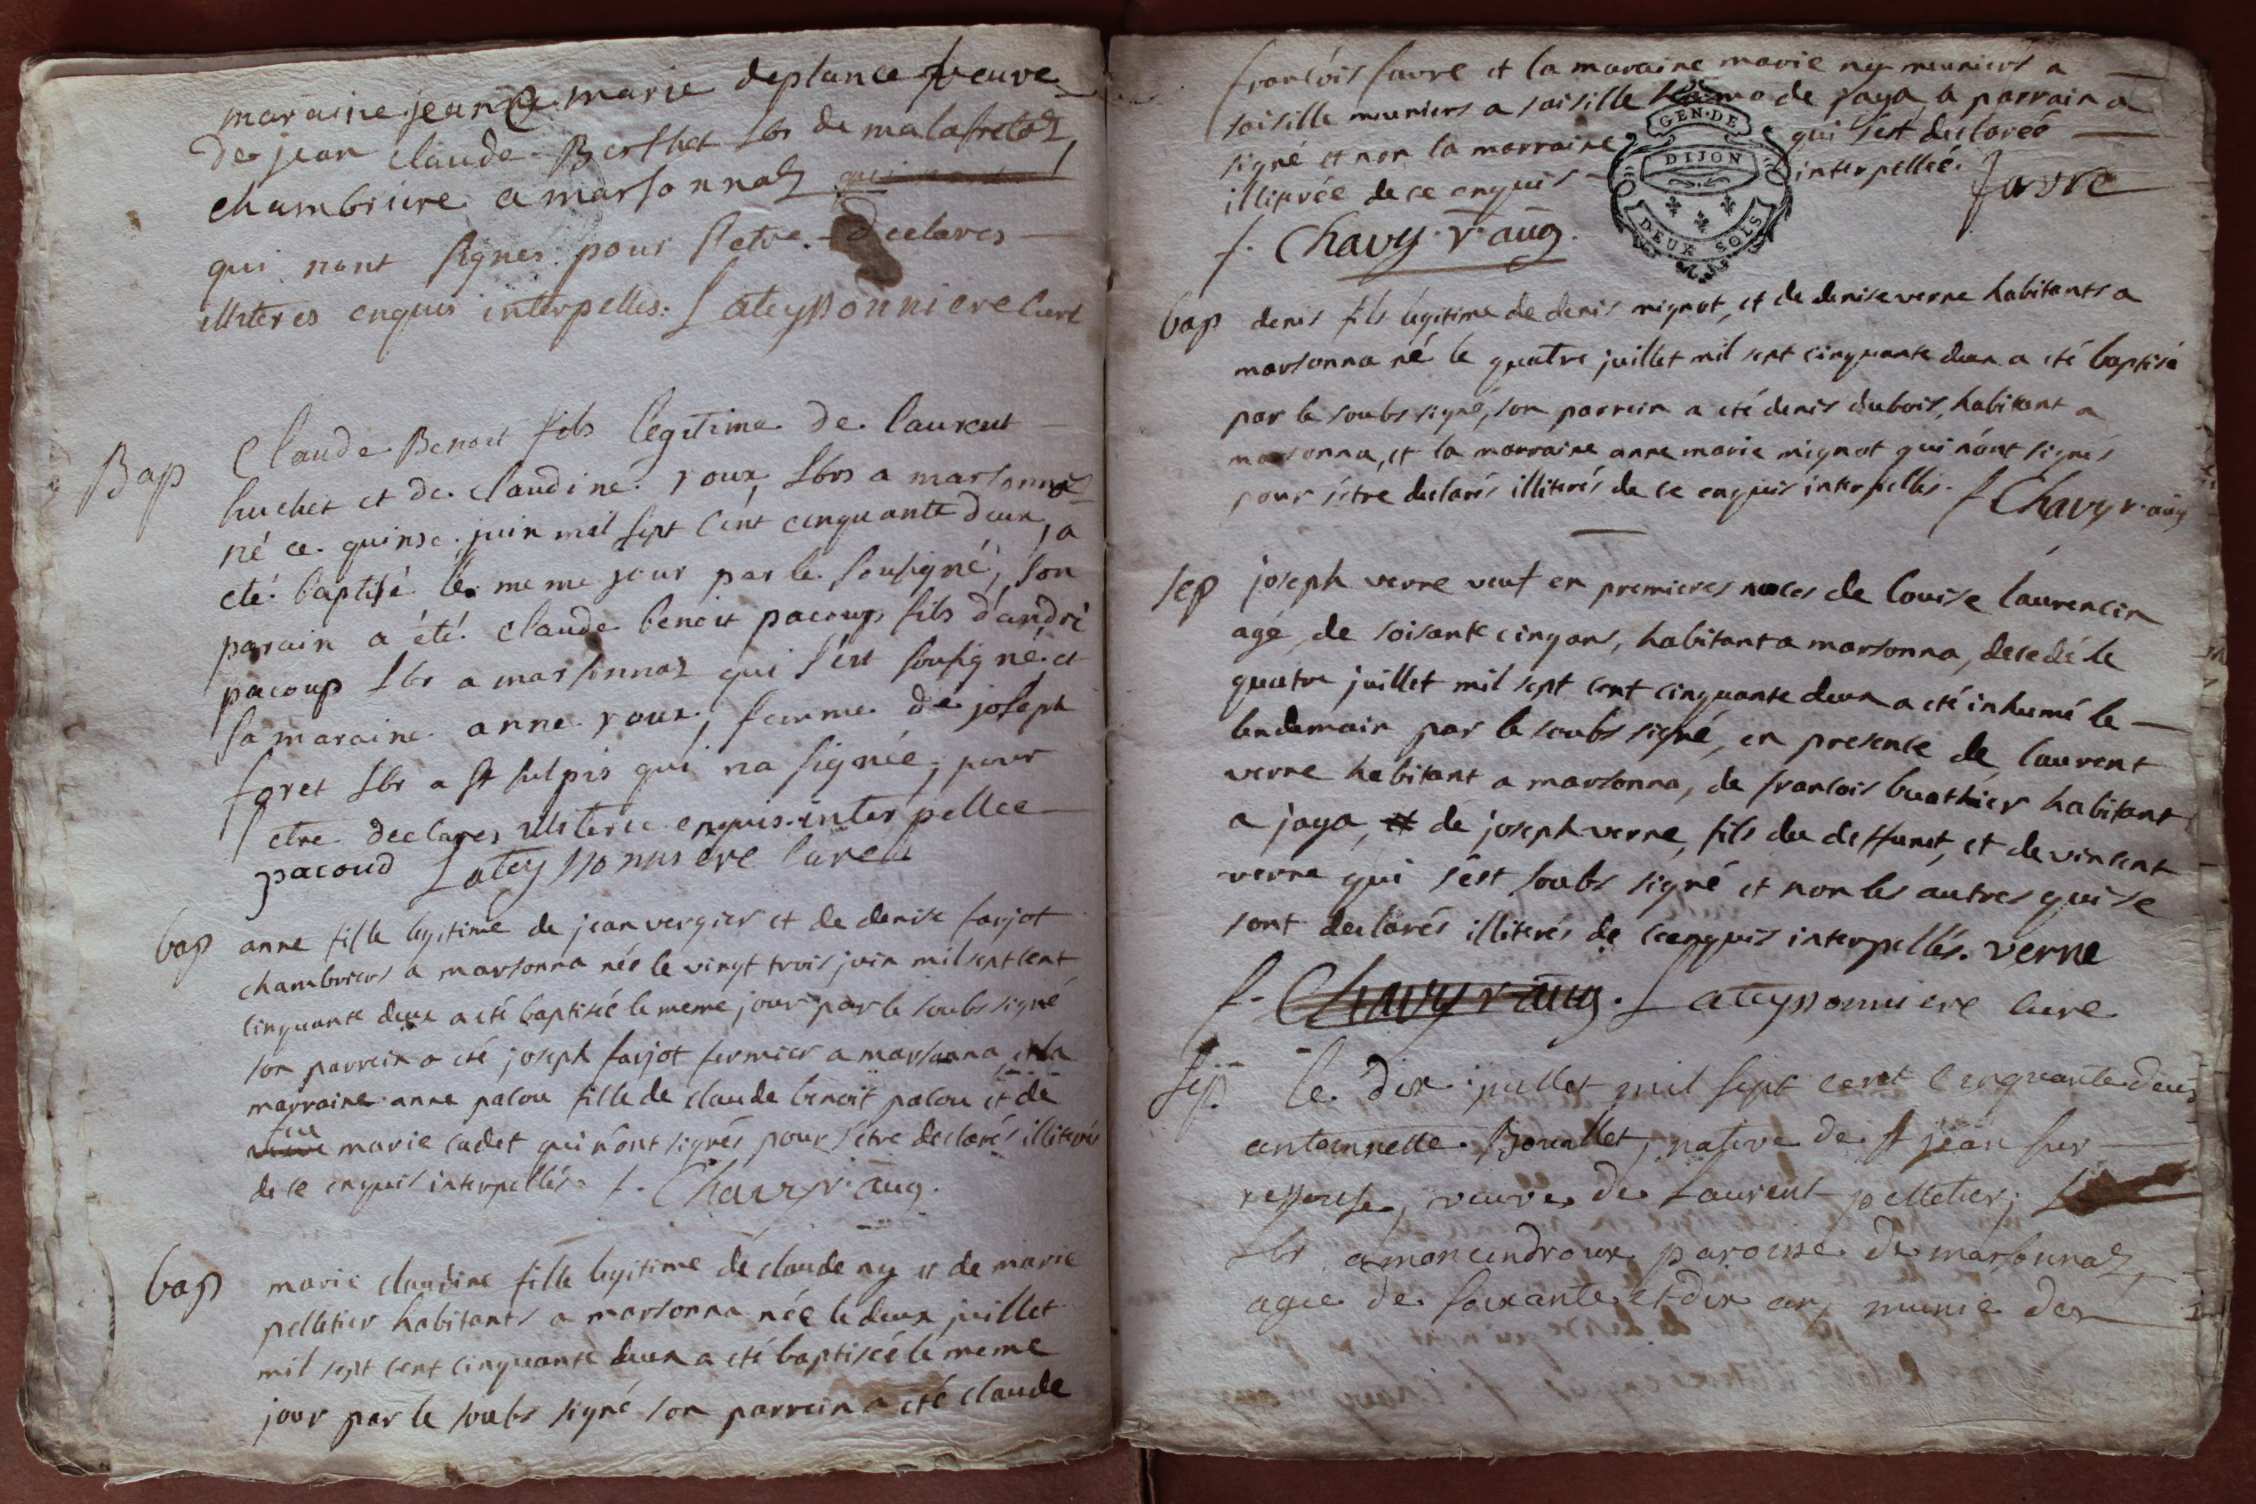 maraine jeanne marie deplance veuve
de jean claude Berthet lbr de malafretaz
chambriere a marsonnaz
qui nont signés pour setre declares
illiteres enquis interpelles. Lateyssonniere curé
Bap Claude Benoit fils legitime de laurent
huchet et de claudine roux lbrs a marsonnaz
né ce quinse juin mil sept cent cinquante deux, a
eté baptisé le meme jour par le sousigné, son
parain a été claude benoit pacoup fils d'andré
pacoup lbr a marsonnaz qui s'est sousigné et
sa maraine anne roux, femme de joseph
foret lbr a st sulpis qui na signée, pour
setre declares illiterée enquis interpellee
pacoud Lateyssonniere curé
bap anne fille legitime de jean vergier et de denise farjot
chambriers a marsonna née le vingt trois juin mil sept cent
cinquante deux a eté baptisée le meme jour par le soubs signé
son parrein a eté joseph farjot fermier a marsonna et la
marraine anne palou fille de claude benoit palou et de
feue marie cadet qui n'ont signés pour s'etre declarés illiterés
de ce enquis interpellés. f. Chavy r. aug.
bap marie claudine fille legitime de claude ny et de marie
pelletier habitants a marsonna née le deux juillet
mil sept cent cinquante deux a eté baptisée le meme
jour par le soubs signé son parrein a eté claude
francois favre et la maraine marie ny muniers a
soisille muniers a soisille de jaya, le parrain a
signé et non la marraine qui s'est declarée
illiterée de ce enquis interpellée. favre
f. Chavy r. aug.
GEN. DE
DIJON
DEUX SOLS
bap denis fils legitime de denis mignot, et de denise verne habitants a
marsonna né le quatre juillet mil sept cinquante deux a eté baptisé
par le soubs signé, son parrein a eté denis dubois, habitant a
marsonna, et la marraine anne marie mignot qui n'ont signés
pour s'etre declarés illiterés de ce enquis interpellés. f Chavy r. aug
sep joseph verne veuf en premieres noces de louise laurencin
agé, de soisante cinq ans, habitant a marsonna, decedé le
quatre juillet mil sept cent cinquante deux a eté inhumé le
lendemain par le soubs signé, en presence de laurent
verne habitant a marsonna, de francois buathier habitant
a jaya, et de joseph verne, fils du deffunct, et de vincent
verne qui s'est soubs signé et non les autres qui se
sont declarés illiterés de ce enquis interpellés. verne
f. Chavy r aug. Lateyssonniere curé
Sep. le dix juillet mil sept cent cinquante deux
antoinnette Bouillet, native de st jean sur
ressouse, veuve de Laurent pelletier,
lbr a moncindroux paroisse de marsonnaz,
agée de soixante et dix ans, munie des